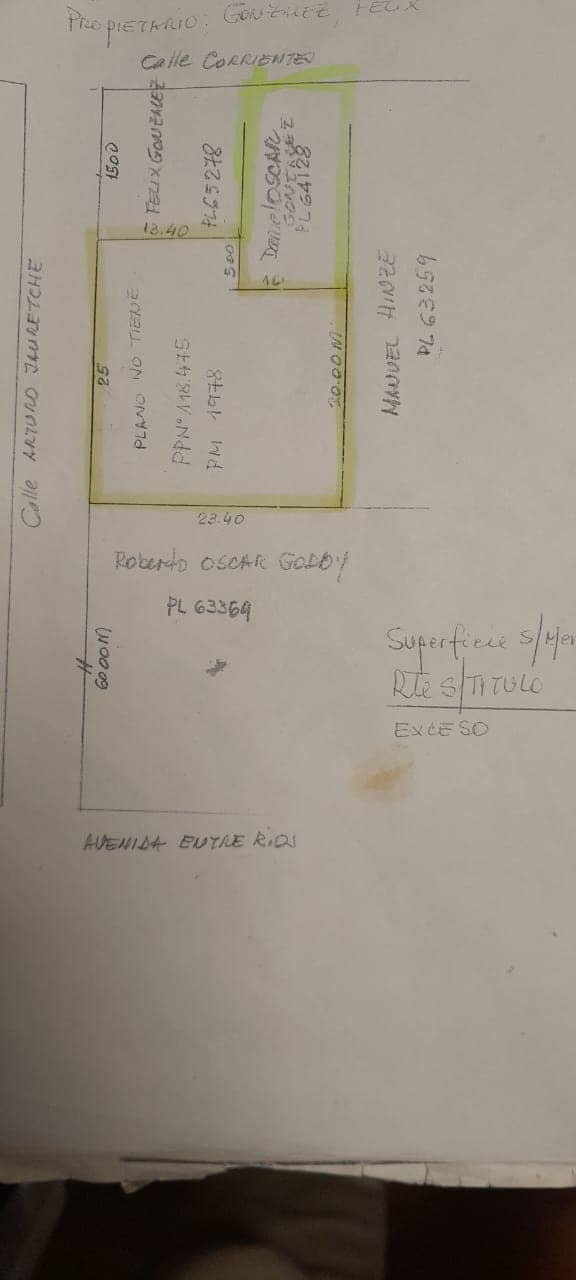 PROPIETARIO: GONZALEZ, FELIX
Calle CORRIENTES
1500
FELIX GONZALEZ
PL65278
13.40
5.00
Daniel OSCAR
GONZALEZ
PL64128
10
MANUEL HINZE
PL 63259
Calle ARTURO JAURETCHE
25
PLANO NO TIENE
PPNº 118.475
PM 1978
20.00M
23.40
Roberto OSCAR GODOY
PL 63369
6000M
Superficie S/Men
Rte S/TITULO
EXCESO
AVENIDA ENTRE RiOS